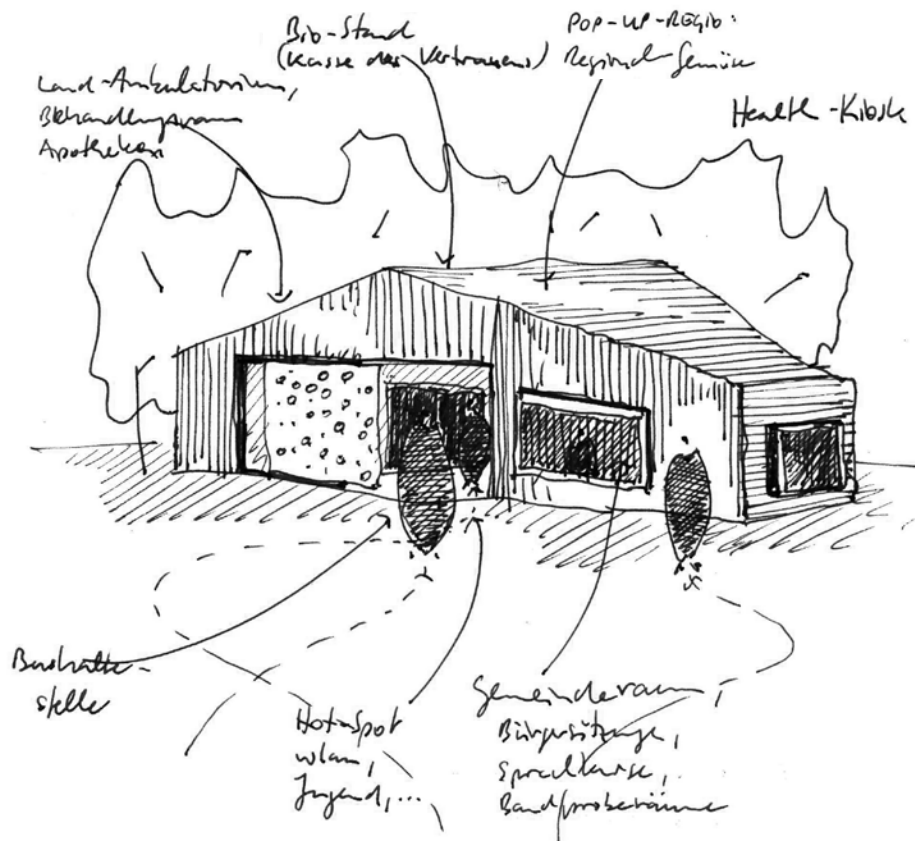 Land-Ambulatorium,
Behandlungsraum
Apotheken
Bio-Stand
(Kasse des Vertrauens)
POP-UP-REGIO:
Regional-Gemüse
Health-Kiosk
Bushalte-
stelle
Hot-Spot
wlan,
Jugend,...
Gemeinderaum,
Bürgersitzunge,
Sprachkurse,
Bandproberäume